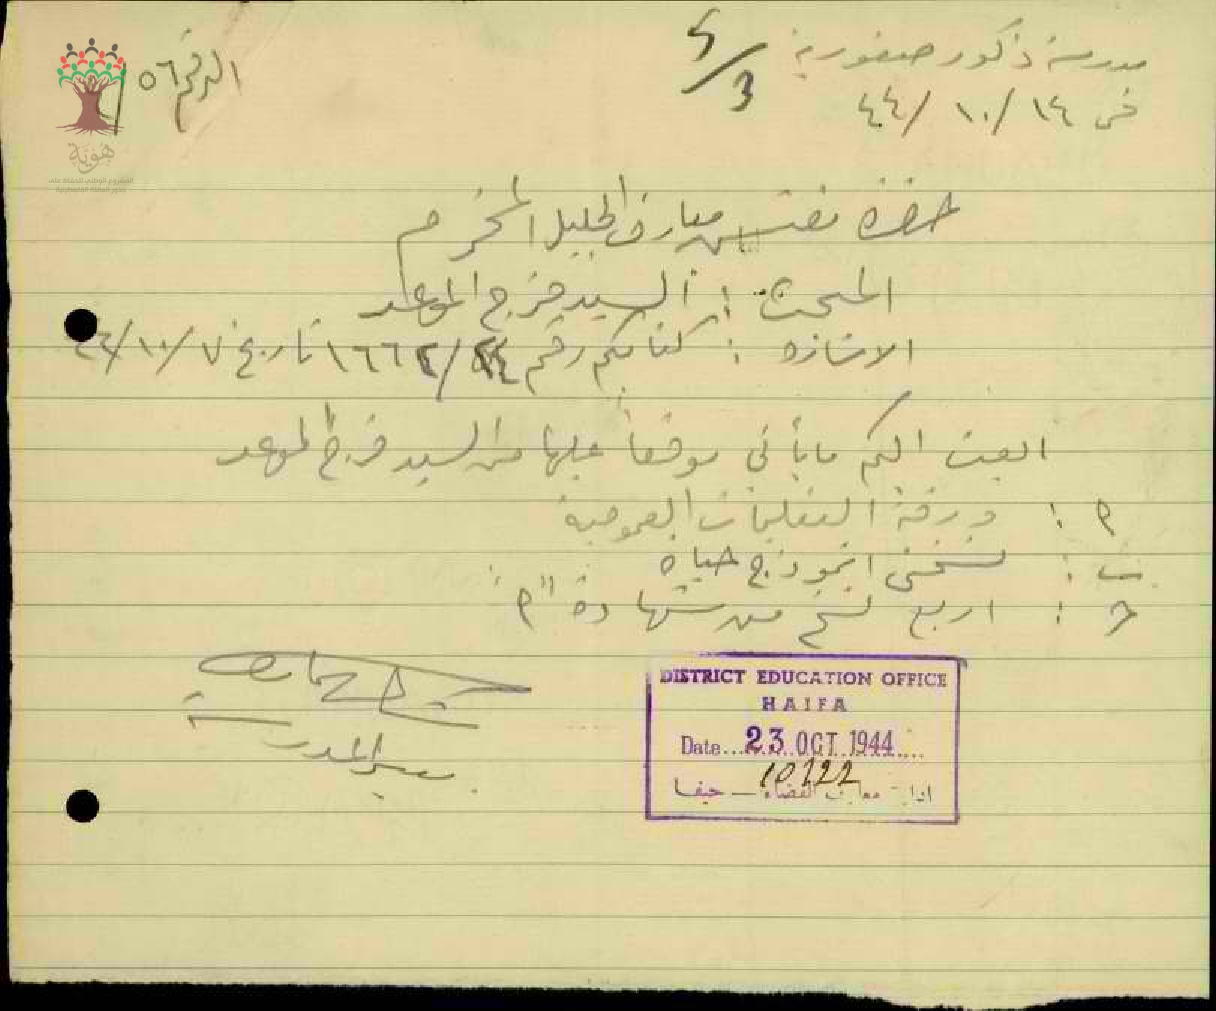 مدرسة ذكور صفورية
في ١٤/ ١٠/ ٤٤
الرقم ٥٦/
5/3
هوية
المشروع الوطني للحفاظ على
جذور العائلة الفلسطينية
حضرة مفتش معارف الجليل المحترم
المبحث : السيد فرج الموعد
الاشارة : كتابكم رقم تاريخ ٧/ ١٠/ ٤٤
ابعث اليكم ما يأتي موقعاً عليها من السيد فرج الموعد
أ : ورقة التعليمات العمومية
ب : نسختي انموذج حياة
ج : اربع نسخ من شهادة "أ"
مدير المدرسة
DISTRICT EDUCATION OFFICE
HAIFA
Date... 23 OCT 1944
10222
ادارة معارف القضاء — حيفا